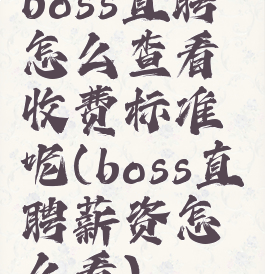 boss直聘
怎么查看
收费标准
呢(boss直
聘薪资怎
么看)